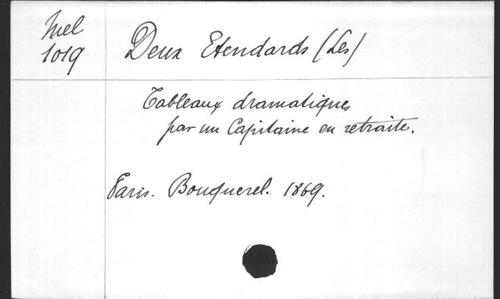 Mel
1019
Deux Etendards (Les)
Tableaux dramatiques
par un Capitaine en retraite.
Paris. Bouquerel. 1869.